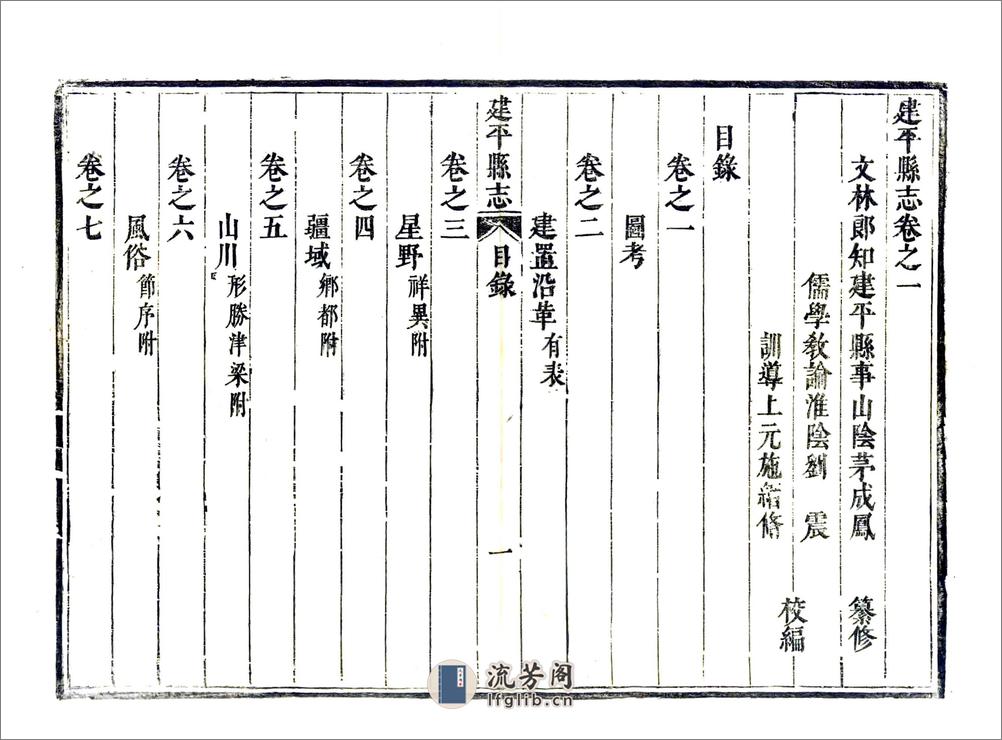 建平縣志卷之一
文林郎知建平縣事山陰茅成鳳 纂修
儒學教諭淮陰劉 震
訓導上元施緒脩
校編
目錄
卷之一
圖考
卷之二
建置沿革有表
建平縣志 目錄 一
卷之三
星野祥異附
卷之四
疆域鄉都附
卷之五
山川形勝津梁附
卷之六
風俗節序附
卷之七
流芳阁
lfglib.cn